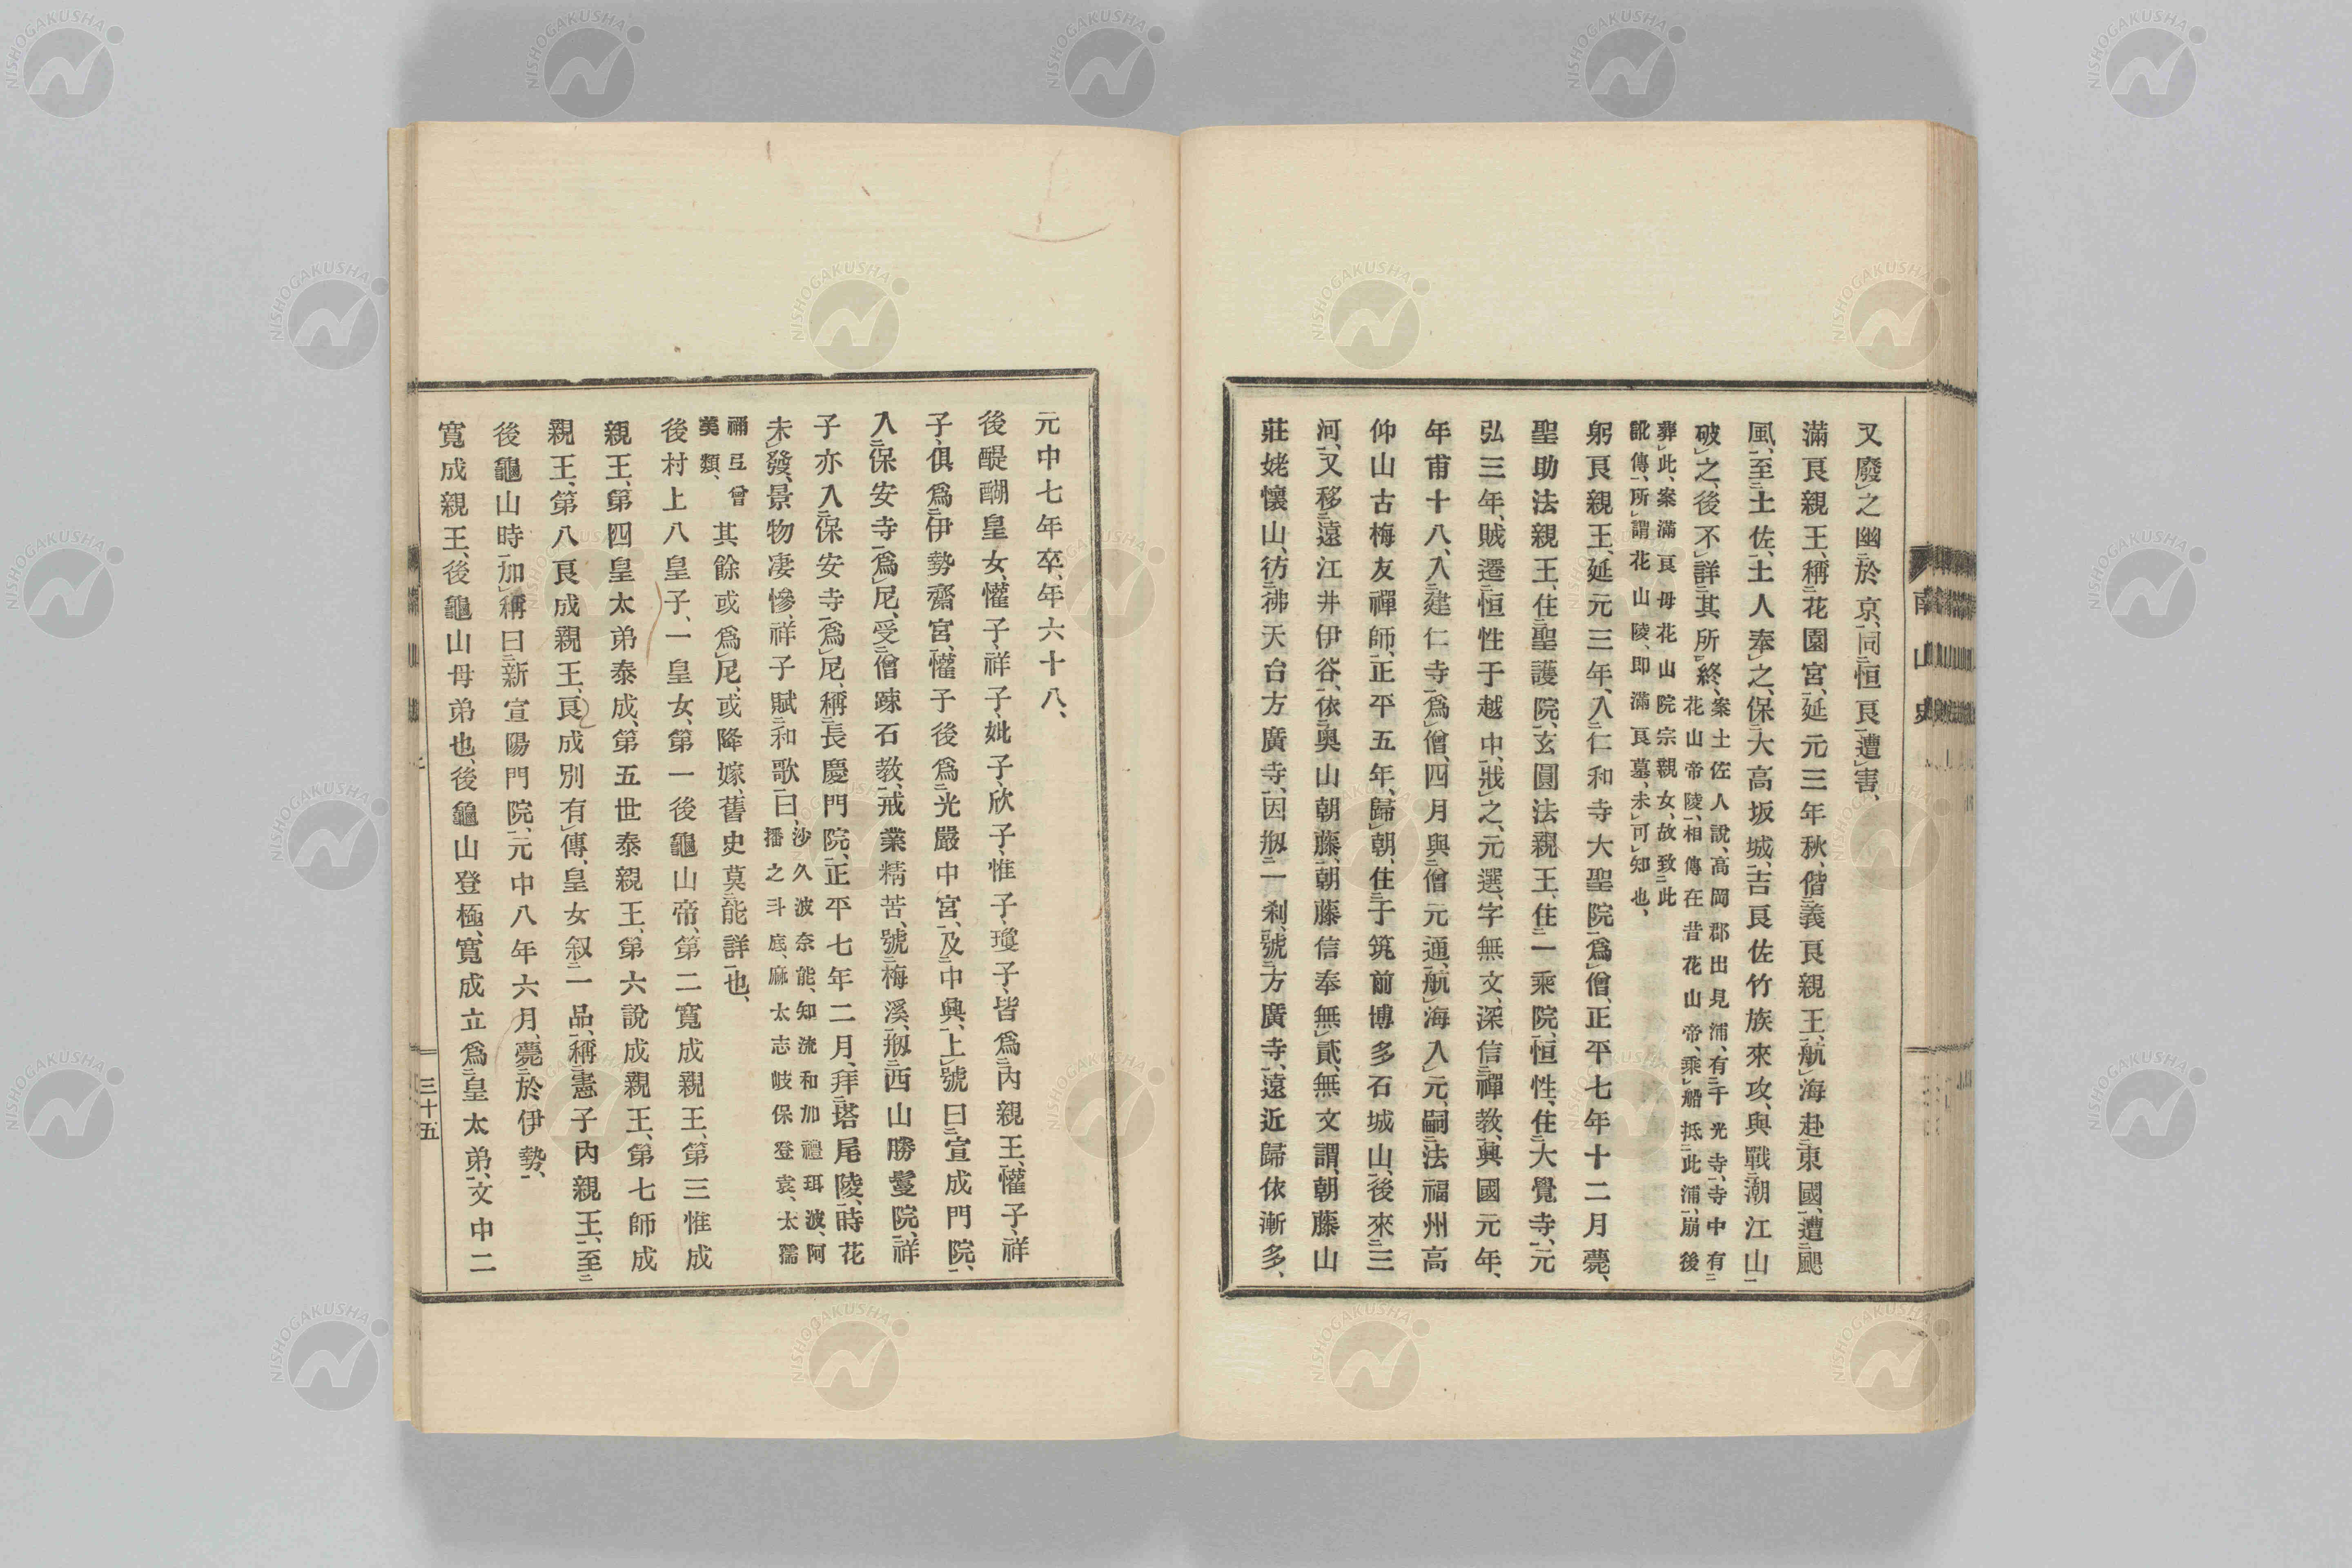 又廢之幽於京、同恒良遭害、
滿良親王、稱花園宮、延元三年秋、偕義良親王、航海赴東國、遭颶
風、至土佐、土人奉之、保大高坂城、吉良佐竹族來攻、與戰潮江山、
破之、後不詳其所終、
案土佐人說、高岡郡出見浦、有千光寺、寺中有
花山帝陵、相傳在昔花山帝、乘船抵此浦、崩後
葬此、案滿良母花山院宗親女、故致此
訛傳、所謂花山陵、即滿良墓、未可知也、
躬良親王、延元三年、入仁和寺大聖院、爲僧、正平七年十二月薨、
聖助法親王、住聖護院、玄圓法親王、住一乘院、恒性、住大覺寺、元
弘三年、賊遷恒性于越中、戕之、元選、字無文、深信禪教、興國元年、
年甫十八、入建仁寺、爲僧、四月與僧元通、航海入元、嗣法福州高
仰山古梅友禪師、正平五年、歸朝、住于筑前博多石城山、後來三
河、又移遠江井伊谷、依奥山朝藤、朝藤信奉無貳、無文謂、朝藤山
莊姥懷山、彷彿天台方廣寺、因剏一刹、號方廣寺、遠近歸依漸多、
南山史
元中七年卒、年六十八、
後醍醐皇女、懽子、祥子、妣子、欣子、惟子、瓊子、皆爲內親王、懽子、祥
子、俱爲伊勢齋宮、懽子後爲光嚴中宮、及中興、上號曰宣成門院、
入保安寺、爲尼、受僧踈石教、戒業精苦、號梅溪、剏西山勝鬘院、祥
子亦入保安寺、爲尼、稱長慶門院、正平七年二月、拜塔尾陵、時花
未發、景物凄慘祥子賦和歌曰、
沙久波奈能、知流和加禮珥波、阿
播之斗底、麻太志岐保登袁、太孺
禰亙曾
美類、
其餘或爲尼、或降嫁、舊史莫能詳也、
後村上八皇子、一皇女、第一後龜山帝、第二寬成親王、第三惟成
親王、第四皇太弟泰成、第五世泰親王、第六說成親王、第七師成
親王、第八良成親王、良成別有傳、皇女叙一品、稱憲子內親王、至
後龜山時、加稱曰新宣陽門院、元中八年六月、薨於伊勢、
寬成親王、後龜山母弟也、後龜山登極、寬成立爲皇太弟、文中二
三十五